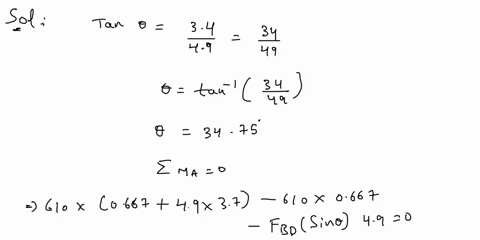 Sol: Tan θ = 3.4/4.9 = 34/49
θ = tan⁻¹ (34/49)
θ = 34.75°
Σ MA = 0
⇒ 610 × (0.667 + 4.9 × 3.7) − 610 × 0.667
− FBD (Sinθ) 4.9 = 0